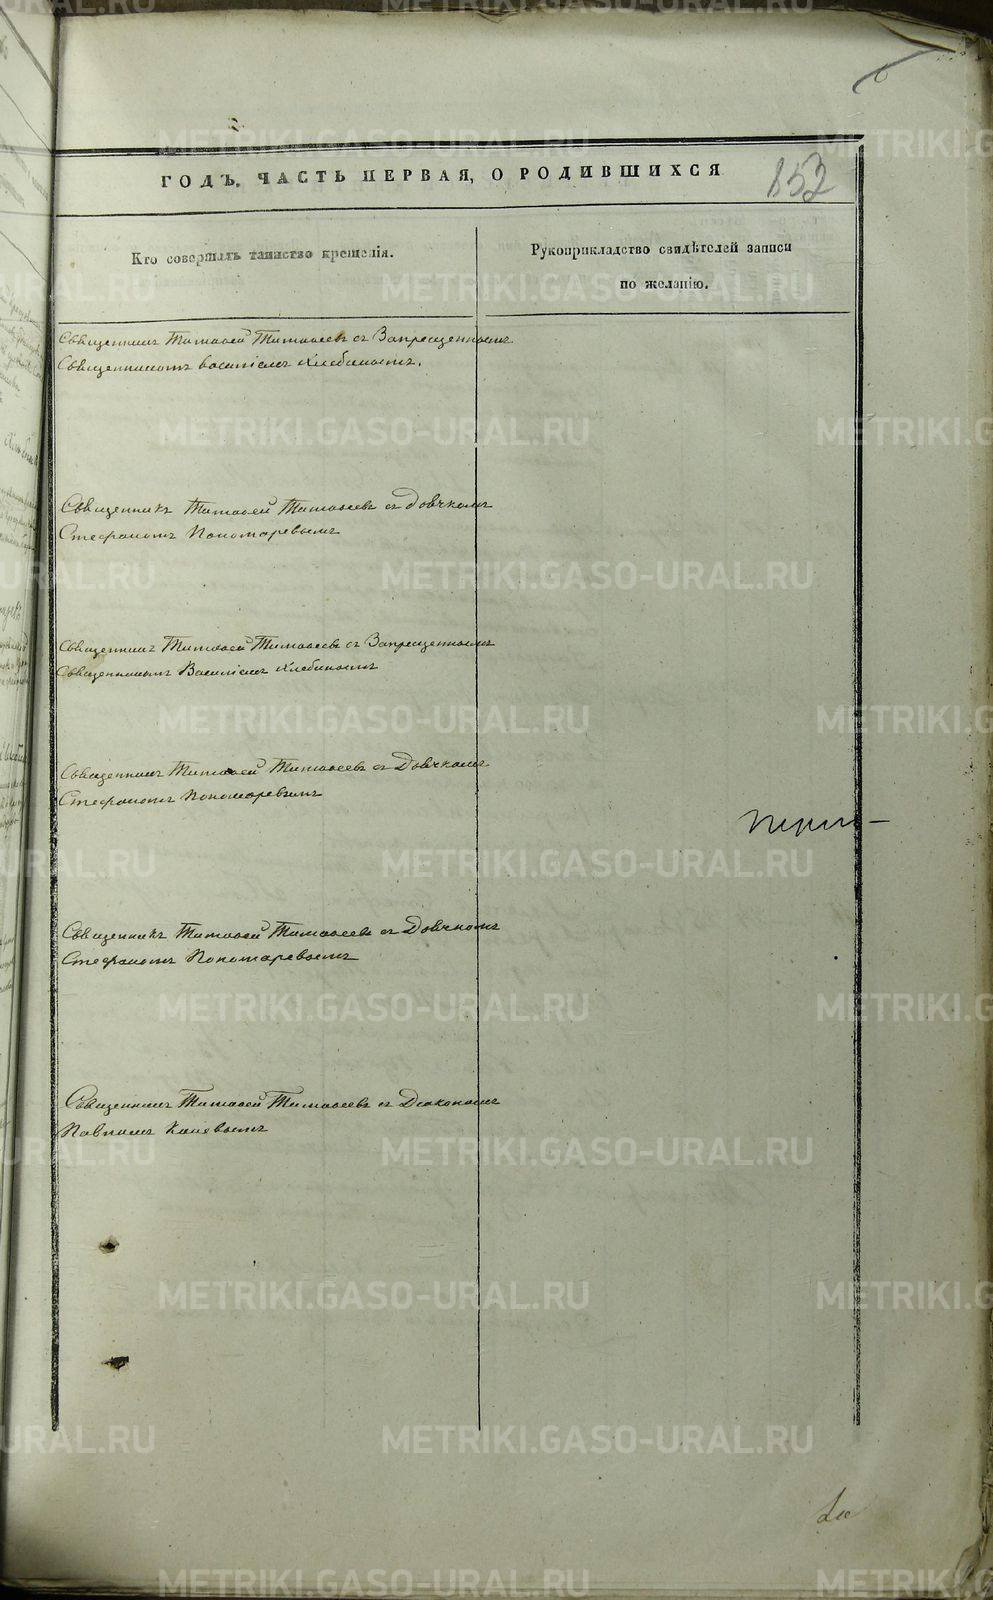 853
ГОДЪ. ЧАСТЬ ПЕРВАЯ, О РОДИВШИХСЯ
Кто совершалъ таинство крещенія.
Рукоприкладство свидѣтелей записи
по желанію.
Священникъ Тимофей Тимофеевъ съ Запрещеннымъ
Священникомъ Василіемъ Хлебинымъ.
Священникъ Тимофей Тимофеевъ съ Дьячкомъ
Стефаномъ Пономаревымъ
Священникъ Тимофей Тимофеевъ съ Запрещеннымъ
Священникомъ Василіемъ Хлебинымъ
Священникъ Тимофей Тимофеевъ съ Дьячкомъ
Стефаномъ Пономаревымъ
Священникъ Тимофей Тимофеевъ съ Дьячкомъ
Стефаномъ Пономаревымъ
Священникъ Тимофей Тимофеевъ съ Диакономъ
Павломъ
METRIKI.GASO-URAL.RU